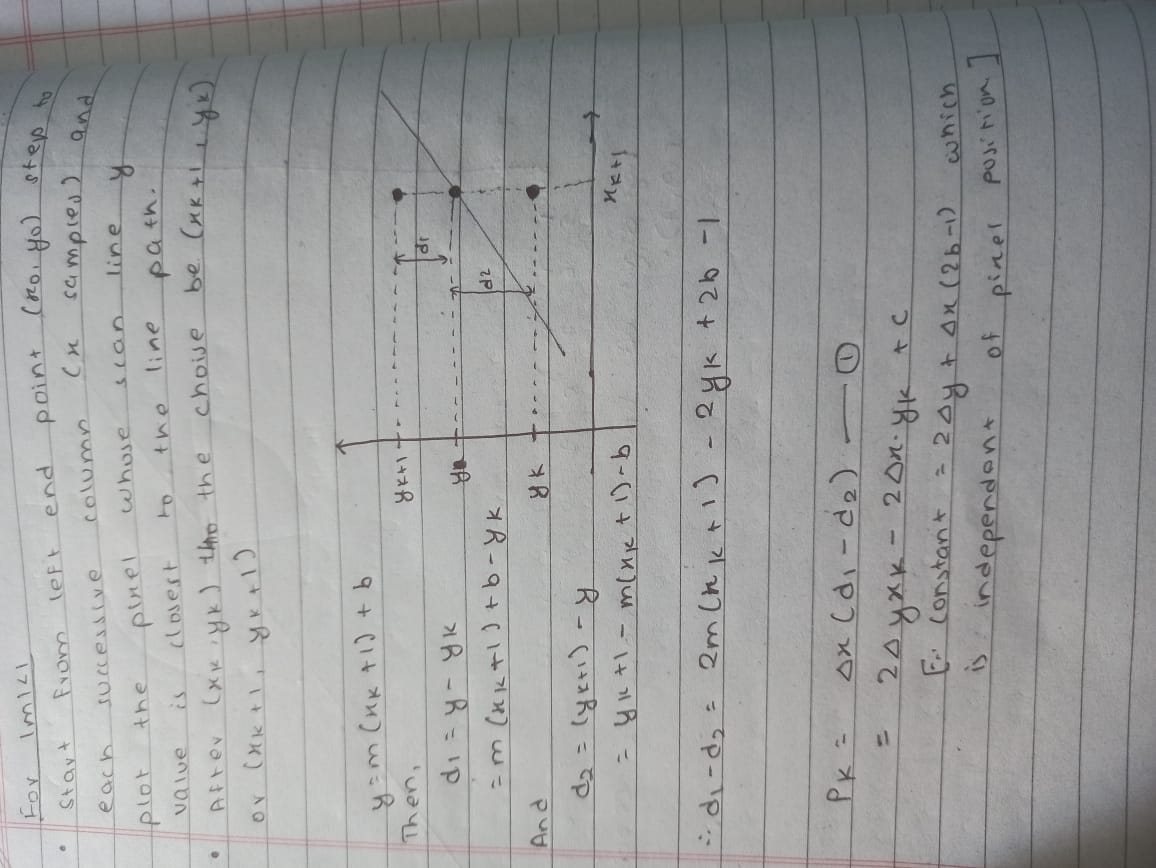 For |m|<1
• Start from left end point (x0, y0) step to
each successive column (x samples) and
plot the pixel whose scan line y
value is closest to the line path.
• After (xk, yk) the choise be (xk+1, yk)
or (xk+1, yk+1)
y = m(xk+1) + b
Then,
d1 = y - yk
= m(xk+1) + b - yk
And
d2 = (yk+1) - y
= yk+1 - m(xk+1) - b
yk+1
y
yk
d1
d2
xk+1
∴ d1 - d2 = 2m(xk+1) - 2yk + 2b - 1
Pk = Δx(d1 - d2) — ①
= 2Δyxk - 2Δx·yk + c
[∵ constant = 2Δy + Δx(2b-1) which
is independant of pixel position]